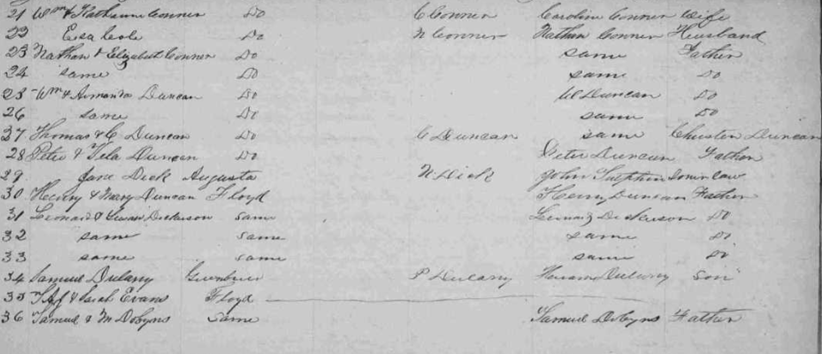 21 Wm & Katharine Conner Do C Conner Caroline Conner Wife
22 Esa Cole Do N Conner Nathan Conner Husband
23 Nathan & Elizabeth Conner Do same Father
24 same Do same Do
25 Wm & Armanda Duncan Do W Duncan Do
26 same Do same Do
27 Thomas & C Duncan Do C Duncan same Christen Duncan
28 Peter & Duncan Do Peter Duncan Father
29 Jane Dick Augusta N Dick John
30 Henry & Mary Duncan Floyd Henry Duncan Father
31 Leonard & Susan Dickerson same Dickerson Do
32 same same same Do
33 same same same Do
34 Samuel Dulany Greenbrier P Dulany Hiram Dulany Son
35 & Sarah Evans Floyd
36 Samuel & M Dobyns same Samuel Dobyns Father